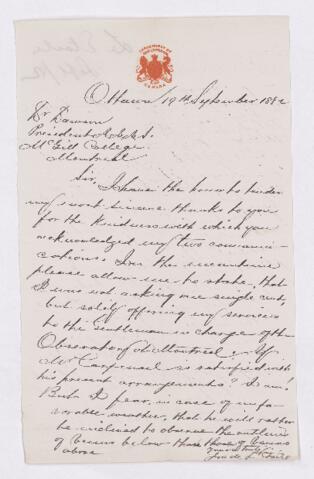 Ottawa 19th September 1882
Dr Dawson
President A.A.A.S.
McGill College
Montreal
Sir, I have the honor to tender
my most sincere thanks to you
for the kindness with which you
acknowledged my two communi-
cations. In the meantime
please allow me to state, that
I was not asking one single cent,
but solely offering my services
to the gentleman in charge of the
Observatory at Montreal. If
Mr Carpmael is satisfied with
his present arrangements? I am!
But I fear, in case of unfa-
vorable weather, that he will rather
be inclined to observe the outlines
of Venus below than those of Venus
above